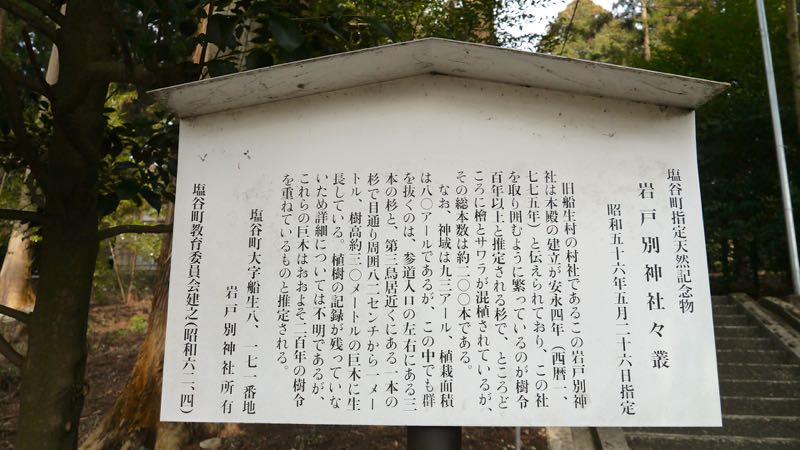 塩谷町指定天然記念物
岩戸別神社々叢
昭和五十六年五月二十六日指定
旧船生村の村社であるこの岩戸別神
社は本殿の建立が安永四年（西暦一、
七七五年）と伝えられており、この社
を取り囲むように繁っているのが樹令
百年以上と推定される杉で、ところど
ころに檜とサワラが混植されているが、
その総本数は約二〇〇本である。
なお、神域は九三アール、植栽面積
は八〇アールであるが、この中でも群
を抜くのは、参道入口の左右にある三
本の杉と、第三鳥居近くにある一本の
杉で目通り周囲八二センチから一メー
トル、樹高約三〇メートルの巨木に生
長している。植樹の記録が残っていな
いため詳細については不明であるが、
これらの巨木はおおよそ二百年の樹令
を重ねているものと推定される。
塩谷町大字船生八、一七一番地
岩戸別神社所有
塩谷町教育委員会建之(昭和六二、四)